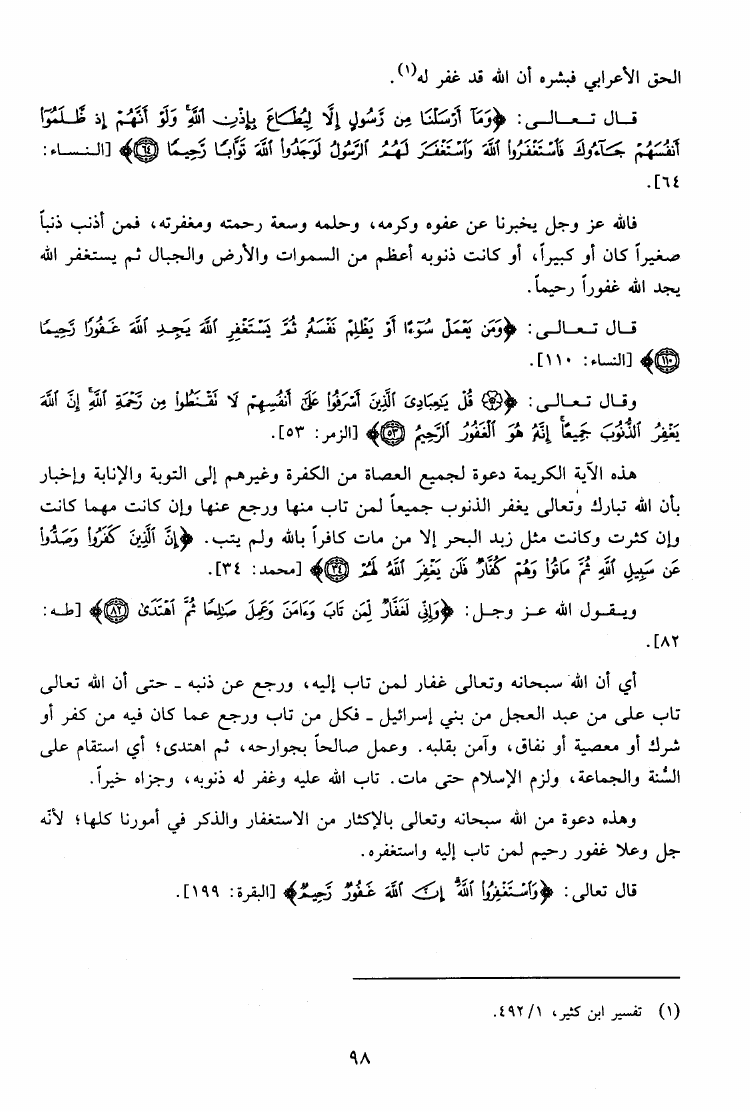 الحق الأعرابي فبشره أن الله قد غفر له(١).
قال تعالى: ﴿وَمَآ أَرْسَلْنَا مِن رَّسُولٍ إِلَّا لِيُطَاعَ بِإِذْنِ ٱللَّهِ ۚ وَلَوْ أَنَّهُمْ إِذ ظَّلَمُوٓا۟
أَنفُسَهُمْ جَآءُوكَ فَٱسْتَغْفَرُوا۟ ٱللَّهَ وَٱسْتَغْفَرَ لَهُمُ ٱلرَّسُولُ لَوَجَدُوا۟ ٱللَّهَ تَوَّابًا رَّحِيمًا ٦٤﴾ [النساء:
٦٤].
فالله عز وجل يخبرنا عن عفوه وكرمه، وحلمه وسعة رحمته ومغفرته، فمن أذنب ذنباً
صغيراً كان أو كبيراً، أو كانت ذنوبه أعظم من السموات والأرض والجبال ثم يستغفر الله
يجد الله غفوراً رحيماً.
قال تعالى: ﴿وَمَن يَعْمَلْ سُوٓءًا أَوْ يَظْلِمْ نَفْسَهُۥ ثُمَّ يَسْتَغْفِرِ ٱللَّهَ يَجِدِ ٱللَّهَ غَفُورًا رَّحِيمًا
١١٠﴾ [النساء: ١١٠].
وقال تعالى: ﴿۞ قُلْ يَٰعِبَادِىَ ٱلَّذِينَ أَسْرَفُوا۟ عَلَىٰٓ أَنفُسِهِمْ لَا تَقْنَطُوا۟ مِن رَّحْمَةِ ٱللَّهِ ۚ إِنَّ ٱللَّهَ
يَغْفِرُ ٱلذُّنُوبَ جَمِيعًا ۚ إِنَّهُۥ هُوَ ٱلْغَفُورُ ٱلرَّحِيمُ ٥٣﴾ [الزمر: ٥٣].
هذه الآية الكريمة دعوة لجميع العصاة من الكفرة وغيرهم إلى التوبة والإنابة وإخبار
بأن الله تبارك وتعالى يغفر الذنوب جميعاً لمن تاب منها ورجع عنها وإن كانت مهما كانت
وإن كثرت وكانت مثل زبد البحر إلا من مات كافراً بالله ولم يتب. ﴿إِنَّ ٱلَّذِينَ كَفَرُوا۟ وَصَدُّوا۟
عَن سَبِيلِ ٱللَّهِ ثُمَّ مَاتُوا۟ وَهُمْ كُفَّارٌ فَلَن يَغْفِرَ ٱللَّهُ لَهُمْ ٣٤﴾ [محمد: ٣٤].
ويقول الله عز وجل: ﴿وَإِنِّى لَغَفَّارٌ لِّمَن تَابَ وَءَامَنَ وَعَمِلَ صَٰلِحًا ثُمَّ ٱهْتَدَىٰ ٨٢﴾ [طه:
٨٢].
أي أن الله سبحانه وتعالى غفار لمن تاب إليه، ورجع عن ذنبه ـ حتى أن الله تعالى
تاب على من عبد العجل من بني إسرائيل ـ فكل من تاب ورجع عما كان فيه من كفر أو
شرك أو معصية أو نفاق، وآمن بقلبه. وعمل صالحاً بجوارحه، ثم اهتدى؛ أي استقام على
السُّنة والجماعة، ولزم الإسلام حتى مات. تاب الله عليه وغفر له ذنوبه، وجزاه خيراً.
وهذه دعوة من الله سبحانه وتعالى بالإكثار من الاستغفار والذكر في أمورنا كلها؛ لأنّه
جل وعلا غفور رحيم لمن تاب إليه واستغفره.
قال تعالى: ﴿وَٱسْتَغْفِرُوا۟ ٱللَّهَ ۚ إِنَّ ٱللَّهَ غَفُورٌ رَّحِيمٌ﴾ [البقرة: ١٩٩].
(١) تفسير ابن كثير، ٤٩٢/١.
٩٨